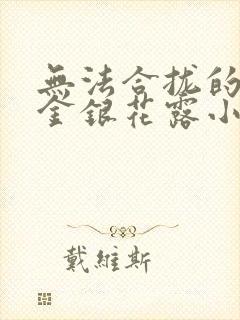 無法合拢的
金銀花露小
戴維斯